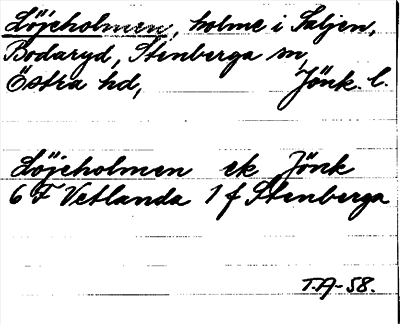 Löjeholmen, holme i Saljen,
Bodaryd, Stenberga sn,
Östra hd, Jönk. l.
Löjeholmen ek Jönk
6 F Vetlanda 1 f Stenberga
T.A-58.